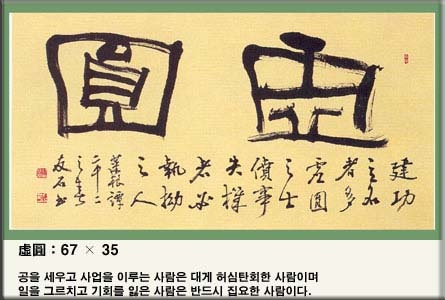 虛圓
建功
立
者多
虛圓
之士
僨事
失機
者必
執拗
之人
菜根譚
友石書
虛圓 : 67 × 35
공을 세우고 사업을 이루는 사람은 대게 허심탄회한 사람이며
일을 그르치고 기회를 잃은 사람은 반드시 집요한 사람이다.